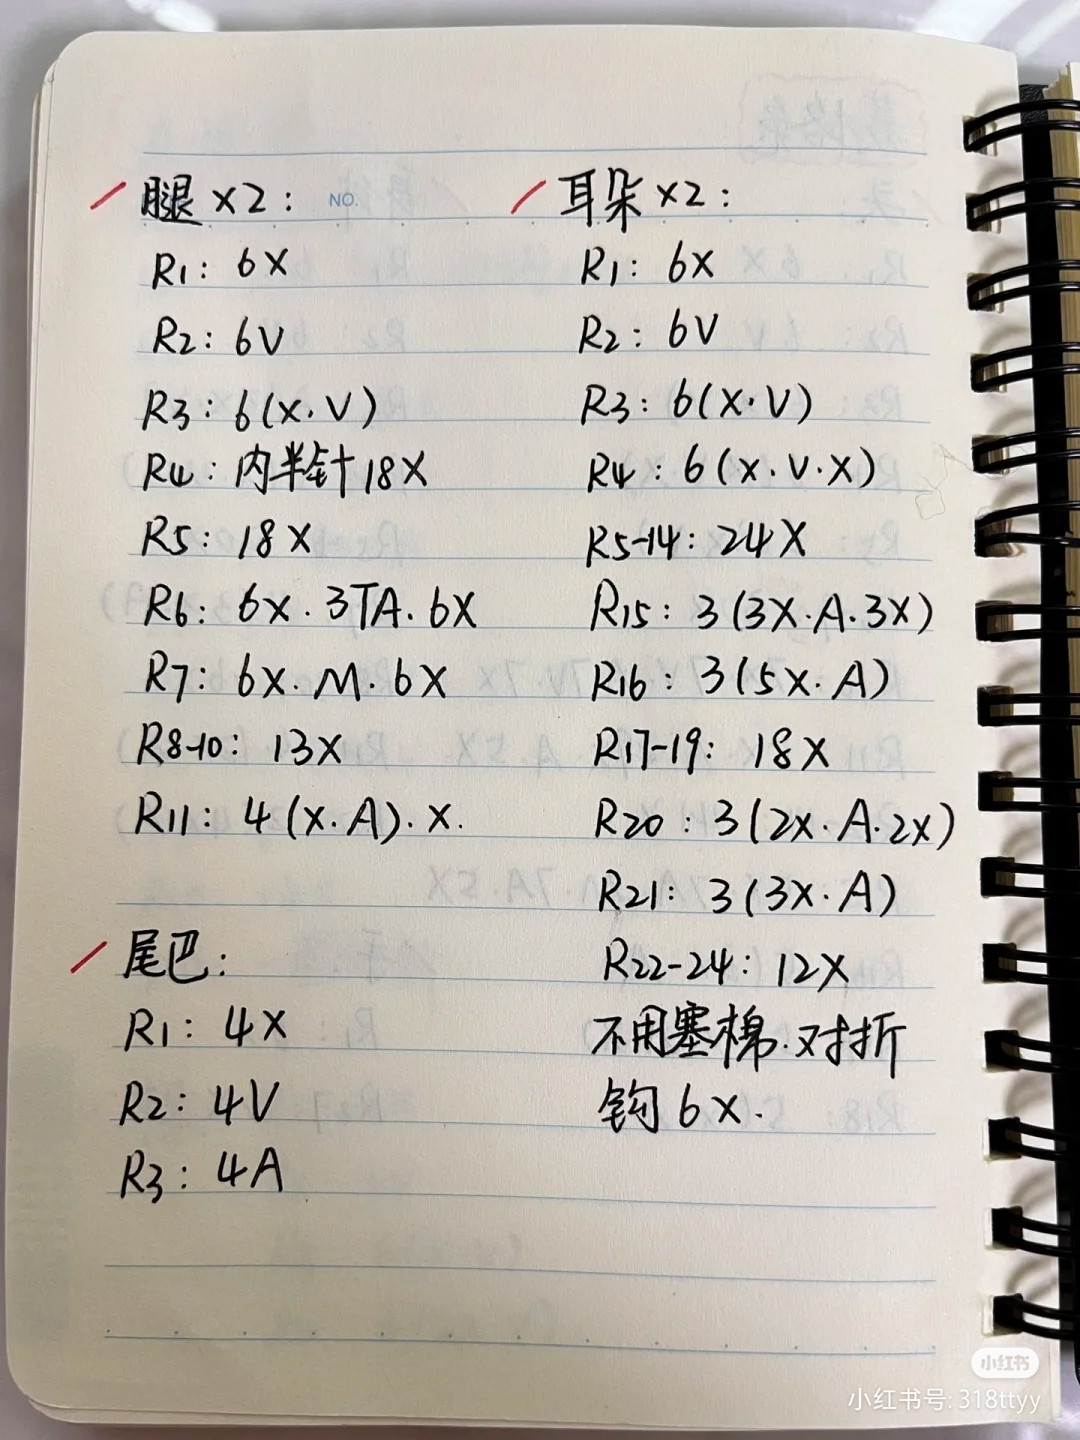 腿×2:
NO.
R1: 6X
R2: 6V
R3: 6(X.V)
R4: 内半针18X
R5: 18X
R6: 6X.3TA.6X
R7: 6X.M.6X
R8-10: 13X
R11: 4(X.A).X.
尾巴:
R1: 4X
R2: 4V
R3: 4A
耳朵×2:
R1: 6X
R2: 6V
R3: 6(X.V)
R4: 6(X.V.X)
R5-14: 24X
R15: 3(3X.A.3X)
R16: 3(5X.A)
R17-19: 18X
R20: 3(2X.A.2X)
R21: 3(3X.A)
R22-24: 12X
不用塞棉.对折
钩6X.
小红书
小红书号: 318ttyy